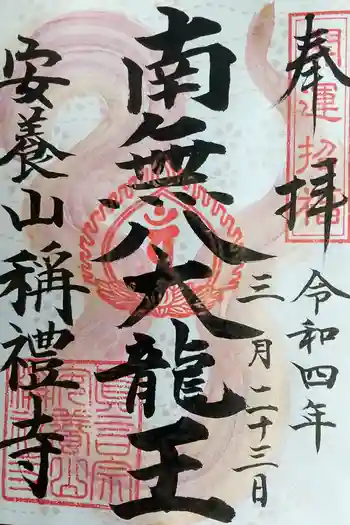 奉拝
開運招福
令和四年
三月二十三日
南無八大龍王
安養山稱禮寺
真言宗